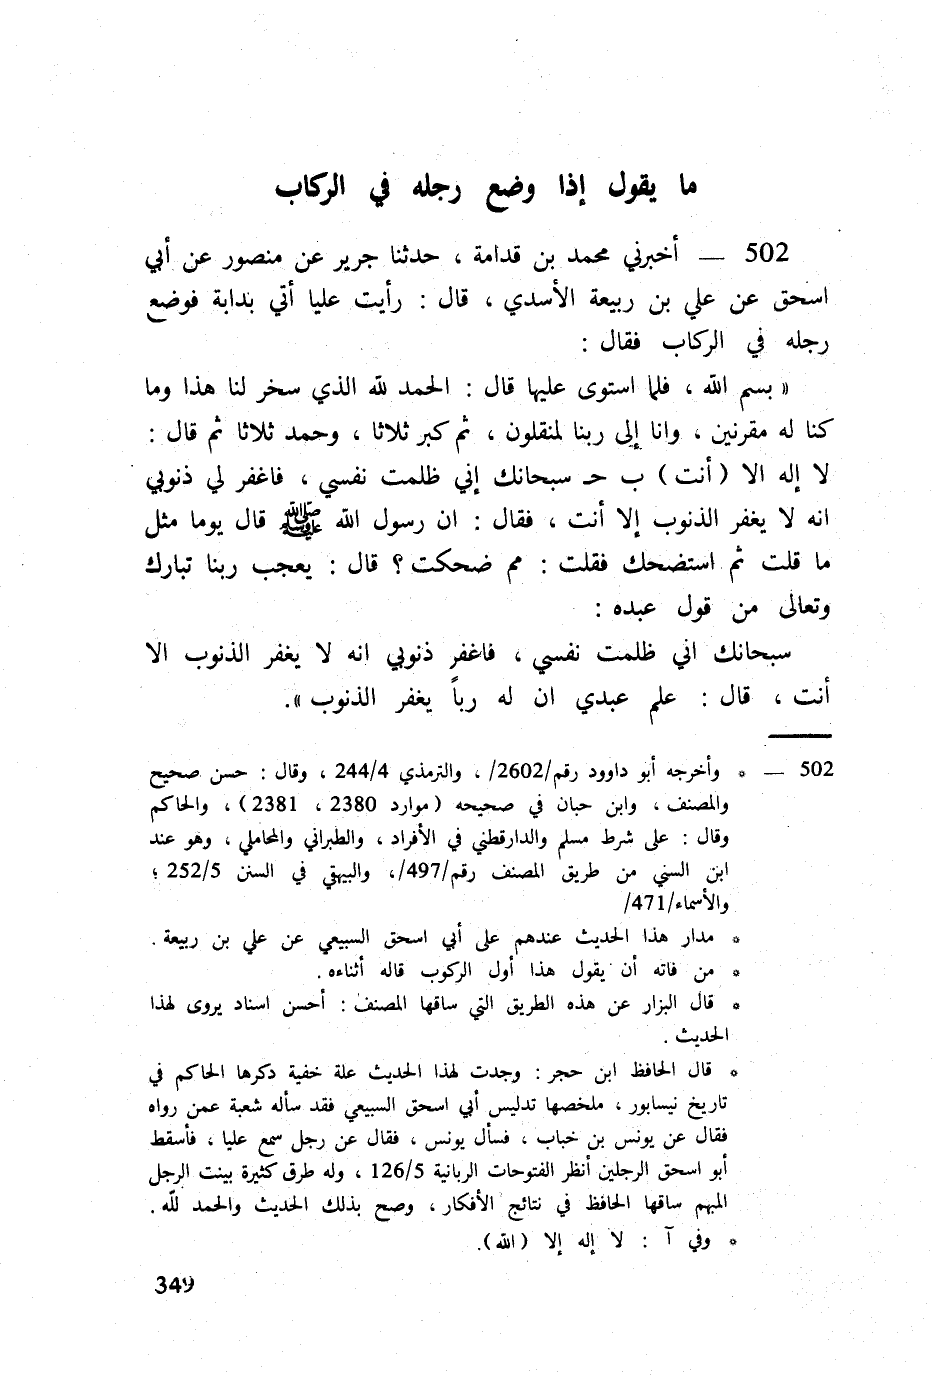 ما يقول إذا وضع رجله في الركاب
502 — أخبرني محمد بن قدامة ، حدثنا جرير عن منصور عن أبي
اسحق عن علي بن ربيعة الأسدي ، قال : رأيت عليا أتي بدابة فوضع
رجله في الركاب فقال :
« بسم الله ، فلما استوى عليها قال : الحمد لله الذي سخر لنا هذا وما
كنا له مقرنين ، وانا إلى ربنا لمنقلون ، ثم كبر ثلاثا ، وحمد ثلاثا ثم قال :
لا إله الا (أنت) ب حـ سبحانك إني ظلمت نفسي ، فاغفر لي ذنوبي
انه لا يغفر الذنوب إلا أنت ، فقال : ان رسول الله ﷺ قال يوما مثل
ما قلت ثم استضحك فقلت : مم ضحكت ؟ قال : يعجب ربنا تبارك
وتعالى من قول عبده :
سبحانك اني ظلمت نفسي ، فاغفر ذنوبي انه لا يغفر الذنوب الا
أنت ، قال : علم عبدي ان له رباً يغفر الذنوب ».
502 — * وأخرجه أبو داوود رقم/2602/ ، والترمذي 244/4 ، وقال : حسن صحيح
والمصنف ، وابن حبان في صحيحه (موارد 2380 ، 2381) ، والحاكم
وقال : على شرط مسلم والدارقطني في الأفراد ، والطبراني والمحاملي ، وهو عند
ابن السني من طريق المصنف رقم/497/، والبيهقي في السنن 252/5 ؛
والأسماء/471/
* مدار هذا الحديث عندهم على أبي اسحق السبيعي عن علي بن ربيعة .
* من فاته أن يقول هذا أول الركوب قاله أثناءه .
* قال البزار عن هذه الطريق التي ساقها المصنف : أحسن اسناد يروى لهذا
الحديث .
* قال الحافظ ابن حجر : وجدت لهذا الحديث علة خفية دكرها الحاكم في
تاريخ نيسابور ، ملخصها تدليس أبي اسحق السبيعي فقد سأله شعبة عمن رواه
فقال عن يونس بن خباب ، فسأل يونس ، فقال عن رجل سمع عليا ، فأسقط
أبو اسحق الرجلين أنظر الفتوحات الربانية 126/5 ، وله طرق كثيرة بينت الرجل
المبهم ساقها الحافظ في نتائج الأفكار ، وصح بذلك الحديث والحمد لله .
* وفي آ : لا إله إلا (الله).
349